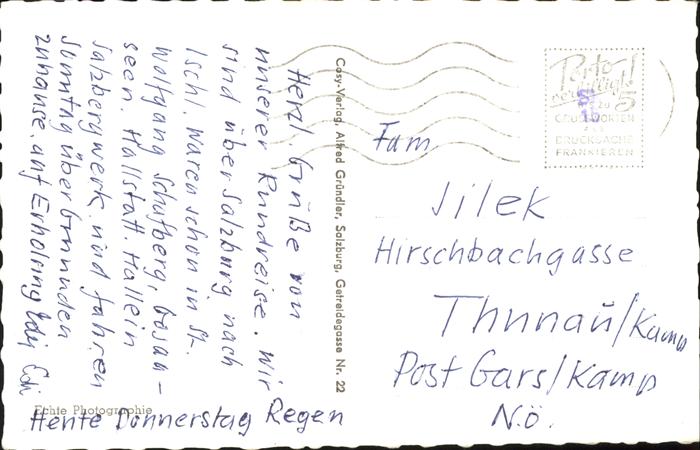 Herzl. Grüße von
unserer Rundreise. Wir
sind über Salzburg nach
Ischl. Waren schon in St.
Wolfgang Schafberg, Gosau-
seen. Hallstatt. Hallein
Salzbergwerk. und fahren
Sonntag über Gmunden
zuhause. auf Erholung
Heute Donnerstag Regen
Echte Photographie
Cosy-Verlag, Alfred Gründler, Salzburg, Getreidegasse Nr. 22
Porto
5
ZU
GRUSSWORTEN
ALS
DRUCKSACHE
FRANKIEREN
Fam.
Jilek
Hirschbachgasse
Thunau/Kamp
Post Gars/Kamp
N.Ö.